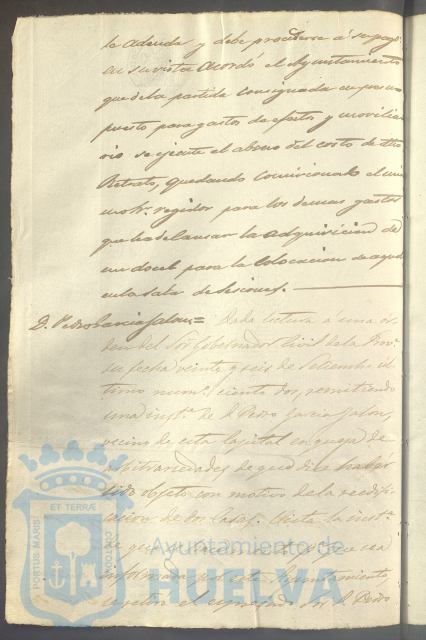 le adeuda y debe procederse á su pago
en su vista acordó el Ayuntamiento
que de la partida consignada en presu
puesto para gastos de efectos y moviliar
rio se ejecute el abono del costo de dho
Retrato, quedando comicionado el mis
mo Sr. regidor para los demas gastos
que ha de causar la adquisicion de
un docel para la colocacion de aquel
en la Sala de Sesiones.
D. Pedro Garcia Jalon = Dada lectura á una or
den del Sor Gobernador Civil de la Prova
su fecha veinte y seis de Setiembre úl
timo num.º ciento dos, remitiendo
una insta. de D. Pedro Garcia Jalon,
vecino de esta Capital en queja de
arbitrariedades de que dice haber
sido objeto con motivo de la reedifi
cacion de dos casas. Vista la insta.
informada por este Ayuntamiento,
el espresado Sor. D. Pedro
PORTUS MARIS ET TERRÆ CUSTODIA
Ayuntamiento de
HUELVA